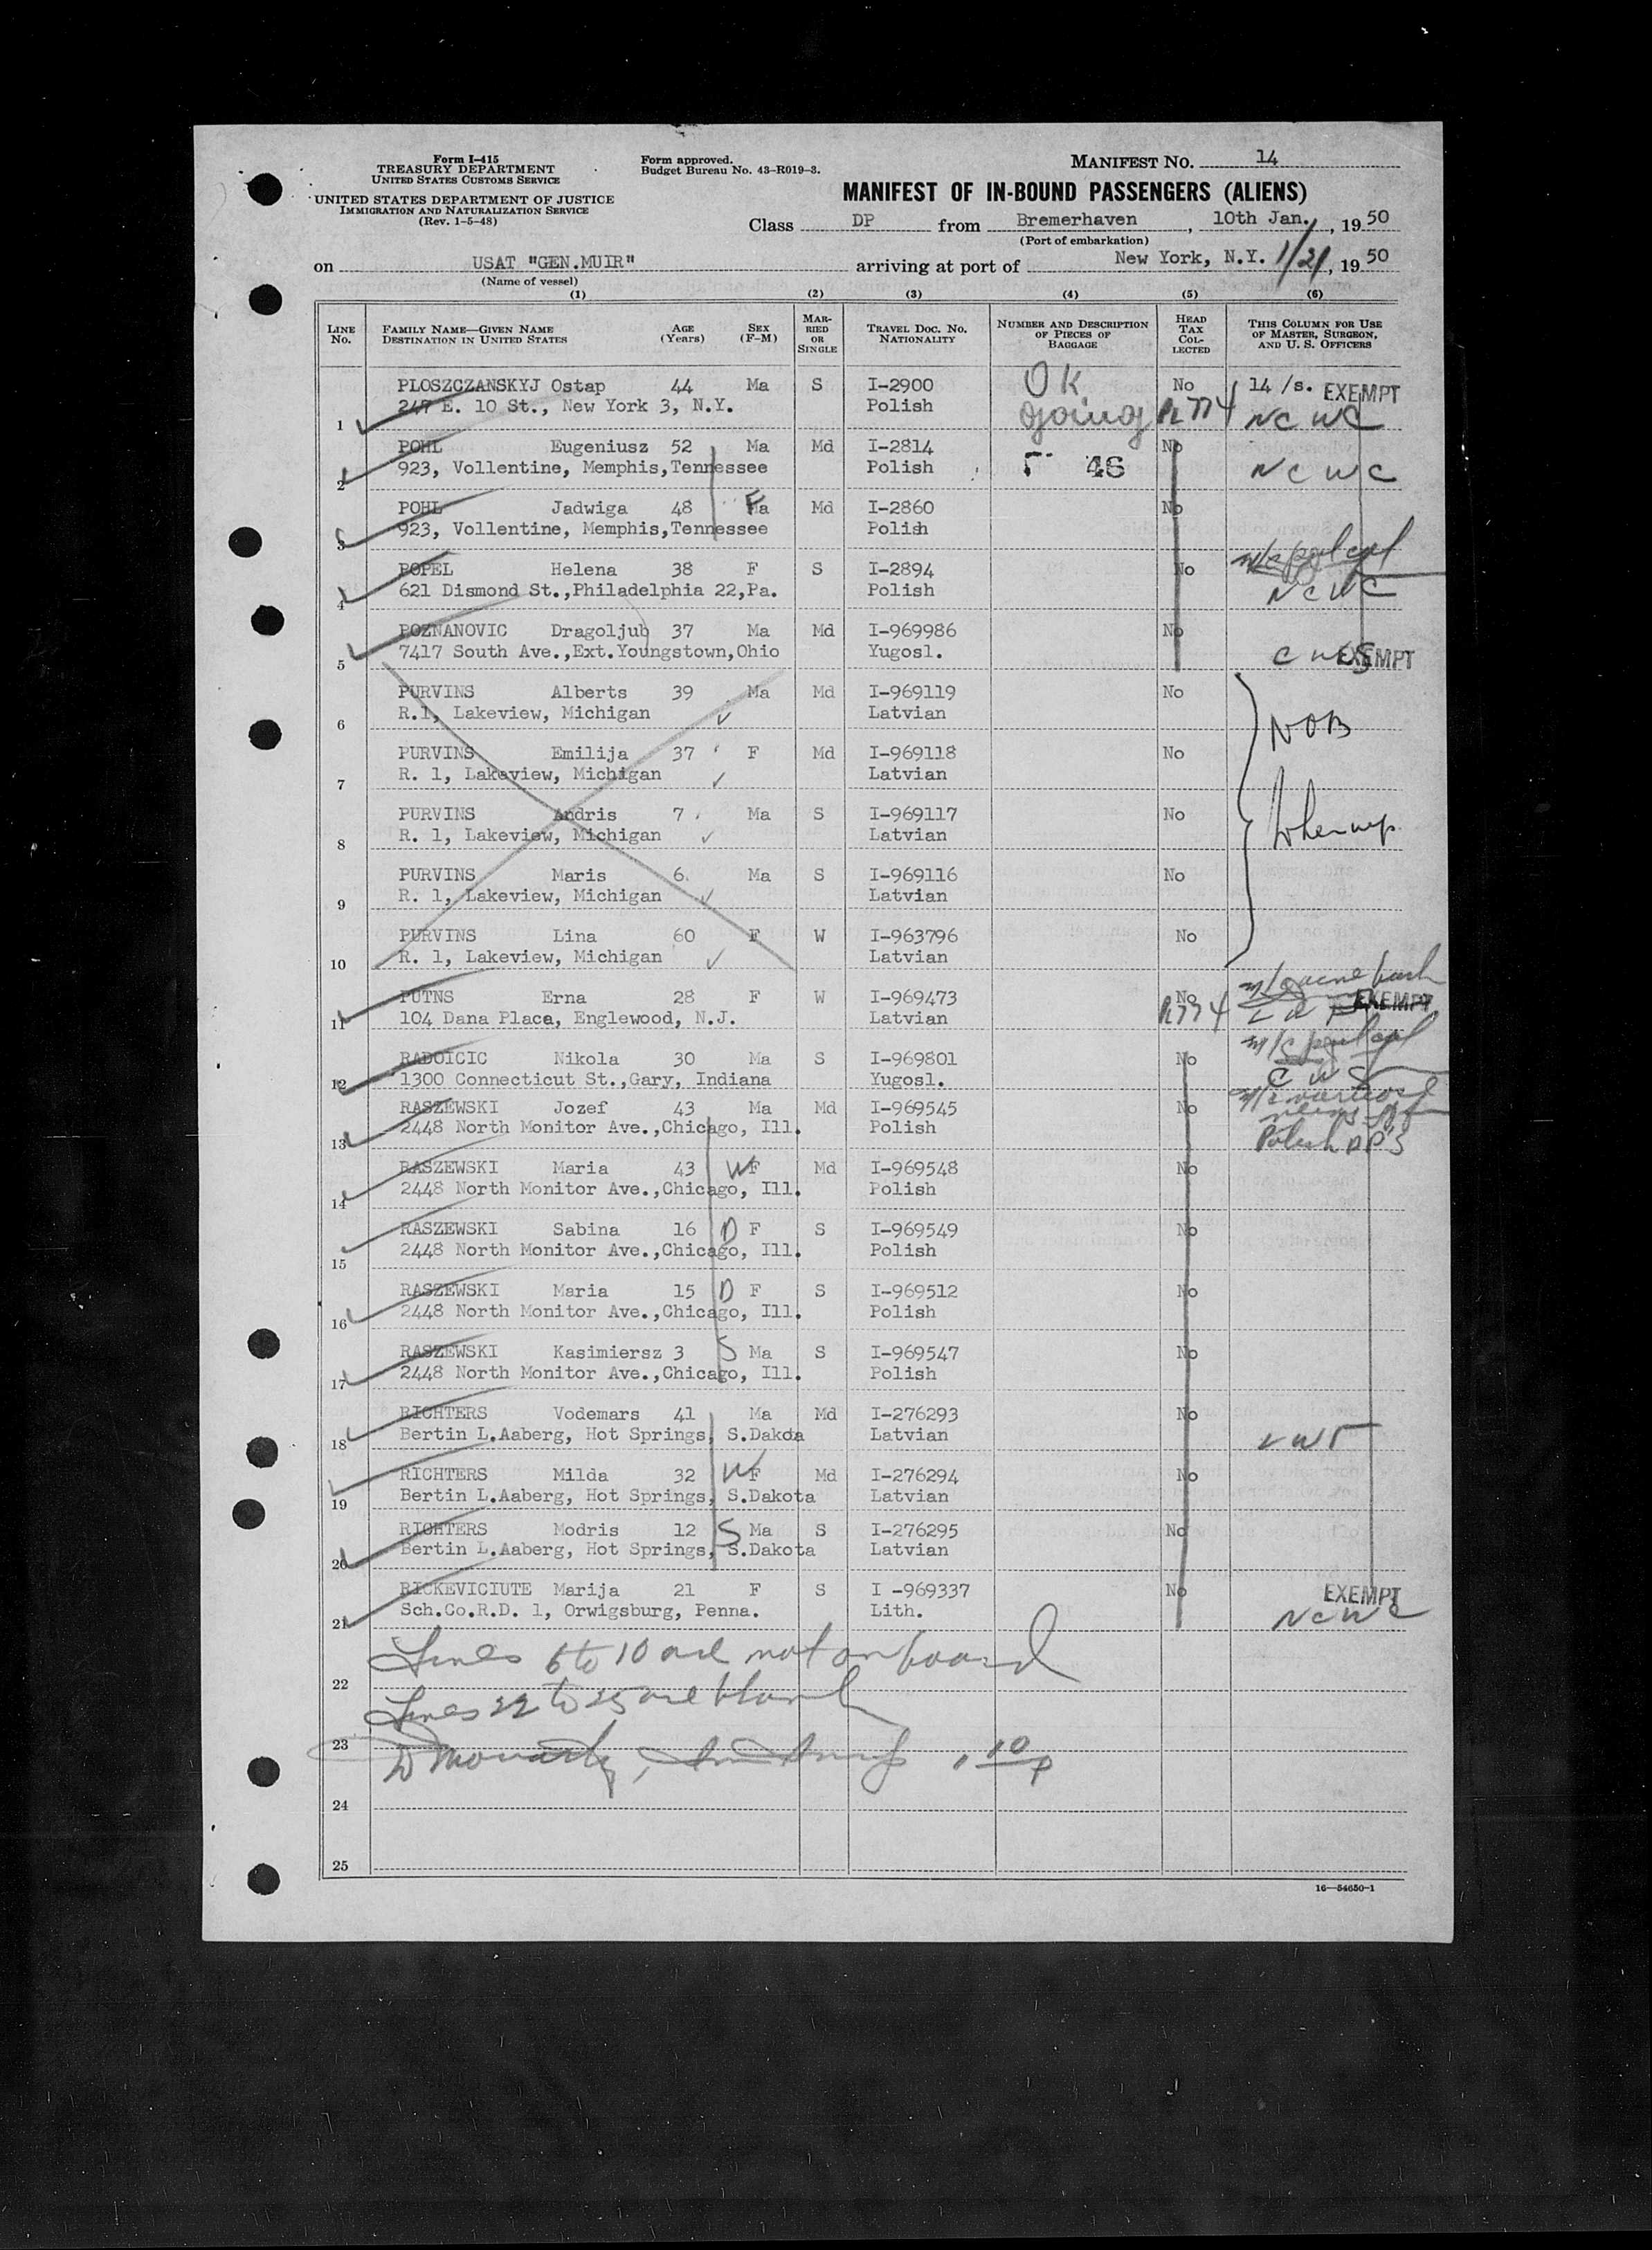 Form I-415
TREASURY DEPARTMENT
UNITED STATES CUSTOMS SERVICE
UNITED STATES DEPARTMENT OF JUSTICE
IMMIGRATION AND NATURALIZATION SERVICE
(Rev. 1-5-48)
Form approved.
Budget Bureau No. 43-R019-3.
MANIFEST NO. 14
MANIFEST OF IN-BOUND PASSENGERS (ALIENS)
Class DP from Bremerhaven, 10th Jan., 1950
(Port of embarkation)
on USAT "GEN.MUIR" arriving at port of New York, N.Y. 1/21, 1950
(Name of vessel)
(1) (2) (3) (4) (5) (6)
LINE No. FAMILY NAME—GIVEN NAME DESTINATION IN UNITED STATES AGE (Years) SEX (F-M) MARRIED OR SINGLE TRAVEL DOC. NO. NATIONALITY NUMBER AND DESCRIPTION OF PIECES OF BAGGAGE HEAD TAX COLLECTED THIS COLUMN FOR USE OF MASTER, SURGEON, AND U. S. OFFICERS
PLOSZCZANSKYJ Ostap 44 Ma S I-2900 OK No 14 /s. EXEMPT
1 247 E. 10 St., New York 3, N.Y. Polish going NCWC
POHL Eugeniusz 52 Ma Md I-2814 No
2 923, Vollentine, Memphis,Tennessee Polish 46 NCWC
POHL Jadwiga 48 F Ma Md I-2860 No
3 923, Vollentine, Memphis,Tennessee Polish
POPEL Helena 38 F S I-2894 No
4 621 Dismond St.,Philadelphia 22,Pa. Polish NCWC
POZNANOVIC Dragoljub 37 Ma Md I-969986 No
5 7417 South Ave.,Ext.Youngstown,Ohio Yugosl. CWS EXEMPT
PURVINS Alberts 39 Ma Md I-969119 No
6 R.1, Lakeview, Michigan Latvian NOB
PURVINS Emilija 37 F Md I-969118 No
7 R. 1, Lakeview, Michigan Latvian
PURVINS Andris 7 Ma S I-969117 No
8 R. 1, Lakeview, Michigan Latvian
PURVINS Maris 6 Ma S I-969116 No
9 R. 1, Lakeview, Michigan Latvian
PURVINS Lina 60 F W I-963796 No
10 R. 1, Lakeview, Michigan Latvian
PUTNS Erna 28 F W I-969473 No EXEMPT
11 104 Dana Place, Englewood, N.J. Latvian
RADOICIC Nikola 30 Ma S I-969801 No
12 1300 Connecticut St.,Gary, Indiana Yugosl. CWS
RASZEWSKI Jozef 43 Ma Md I-969545 No
13 2448 North Monitor Ave.,Chicago, Ill. Polish Polish DP'S
RASZEWSKI Maria 43 W F Md I-969548 No
14 2448 North Monitor Ave.,Chicago, Ill. Polish
RASZEWSKI Sabina 16 D F S I-969549 No
15 2448 North Monitor Ave.,Chicago, Ill. Polish
RASZEWSKI Maria 15 D F S I-969512 No
16 2448 North Monitor Ave.,Chicago, Ill. Polish
RASZEWSKI Kasimiersz 3 S Ma S I-969547 No
17 2448 North Monitor Ave.,Chicago, Ill. Polish
RICHTERS Vodemars 41 Ma Md I-276293 No
18 Bertin L.Aaberg, Hot Springs, S.Dakota Latvian
RICHTERS Milda 32 W F Md I-276294 No
19 Bertin L.Aaberg, Hot Springs, S.Dakota Latvian
RICHTERS Modris 12 S Ma S I-276295 No
20 Bertin L.Aaberg, Hot Springs, S.Dakota Latvian
RICKEVICIUTE Marija 21 F S I -969337 No EXEMPT
21 Sch.Co.R.D. 1, Orwigsburg, Penna. Lith. NCWC
Lines 6 to 10 are not on board
22
Lines 22 to 25 are blank
23
24
25
16—54650-1